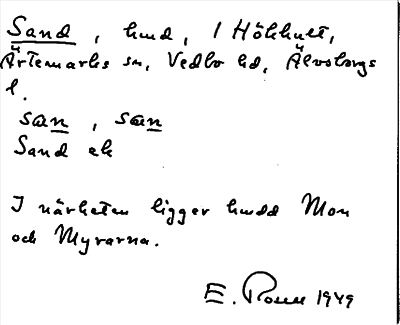 Sand, hmd, 1 Hökhult,
Ärtemarks sn, Vedbo hd, Älvsborgs
l.
san, san
Sand ek
I närheten ligger hmdd Mon
och Myrarna.
E. Rosell 1949